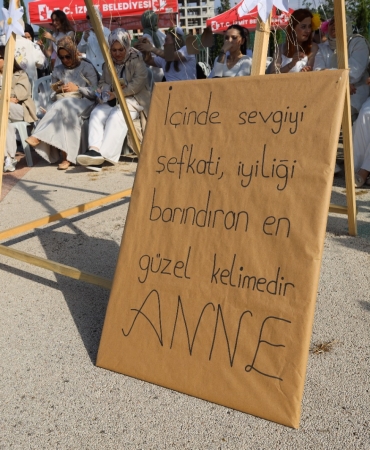 T.C. İZMİT BELEDİYESİ
T.C. İZMİT BEL
İçinde sevgiyi
şefkati, iyiliği
barındıran en
güzel kelimedir
ANNE